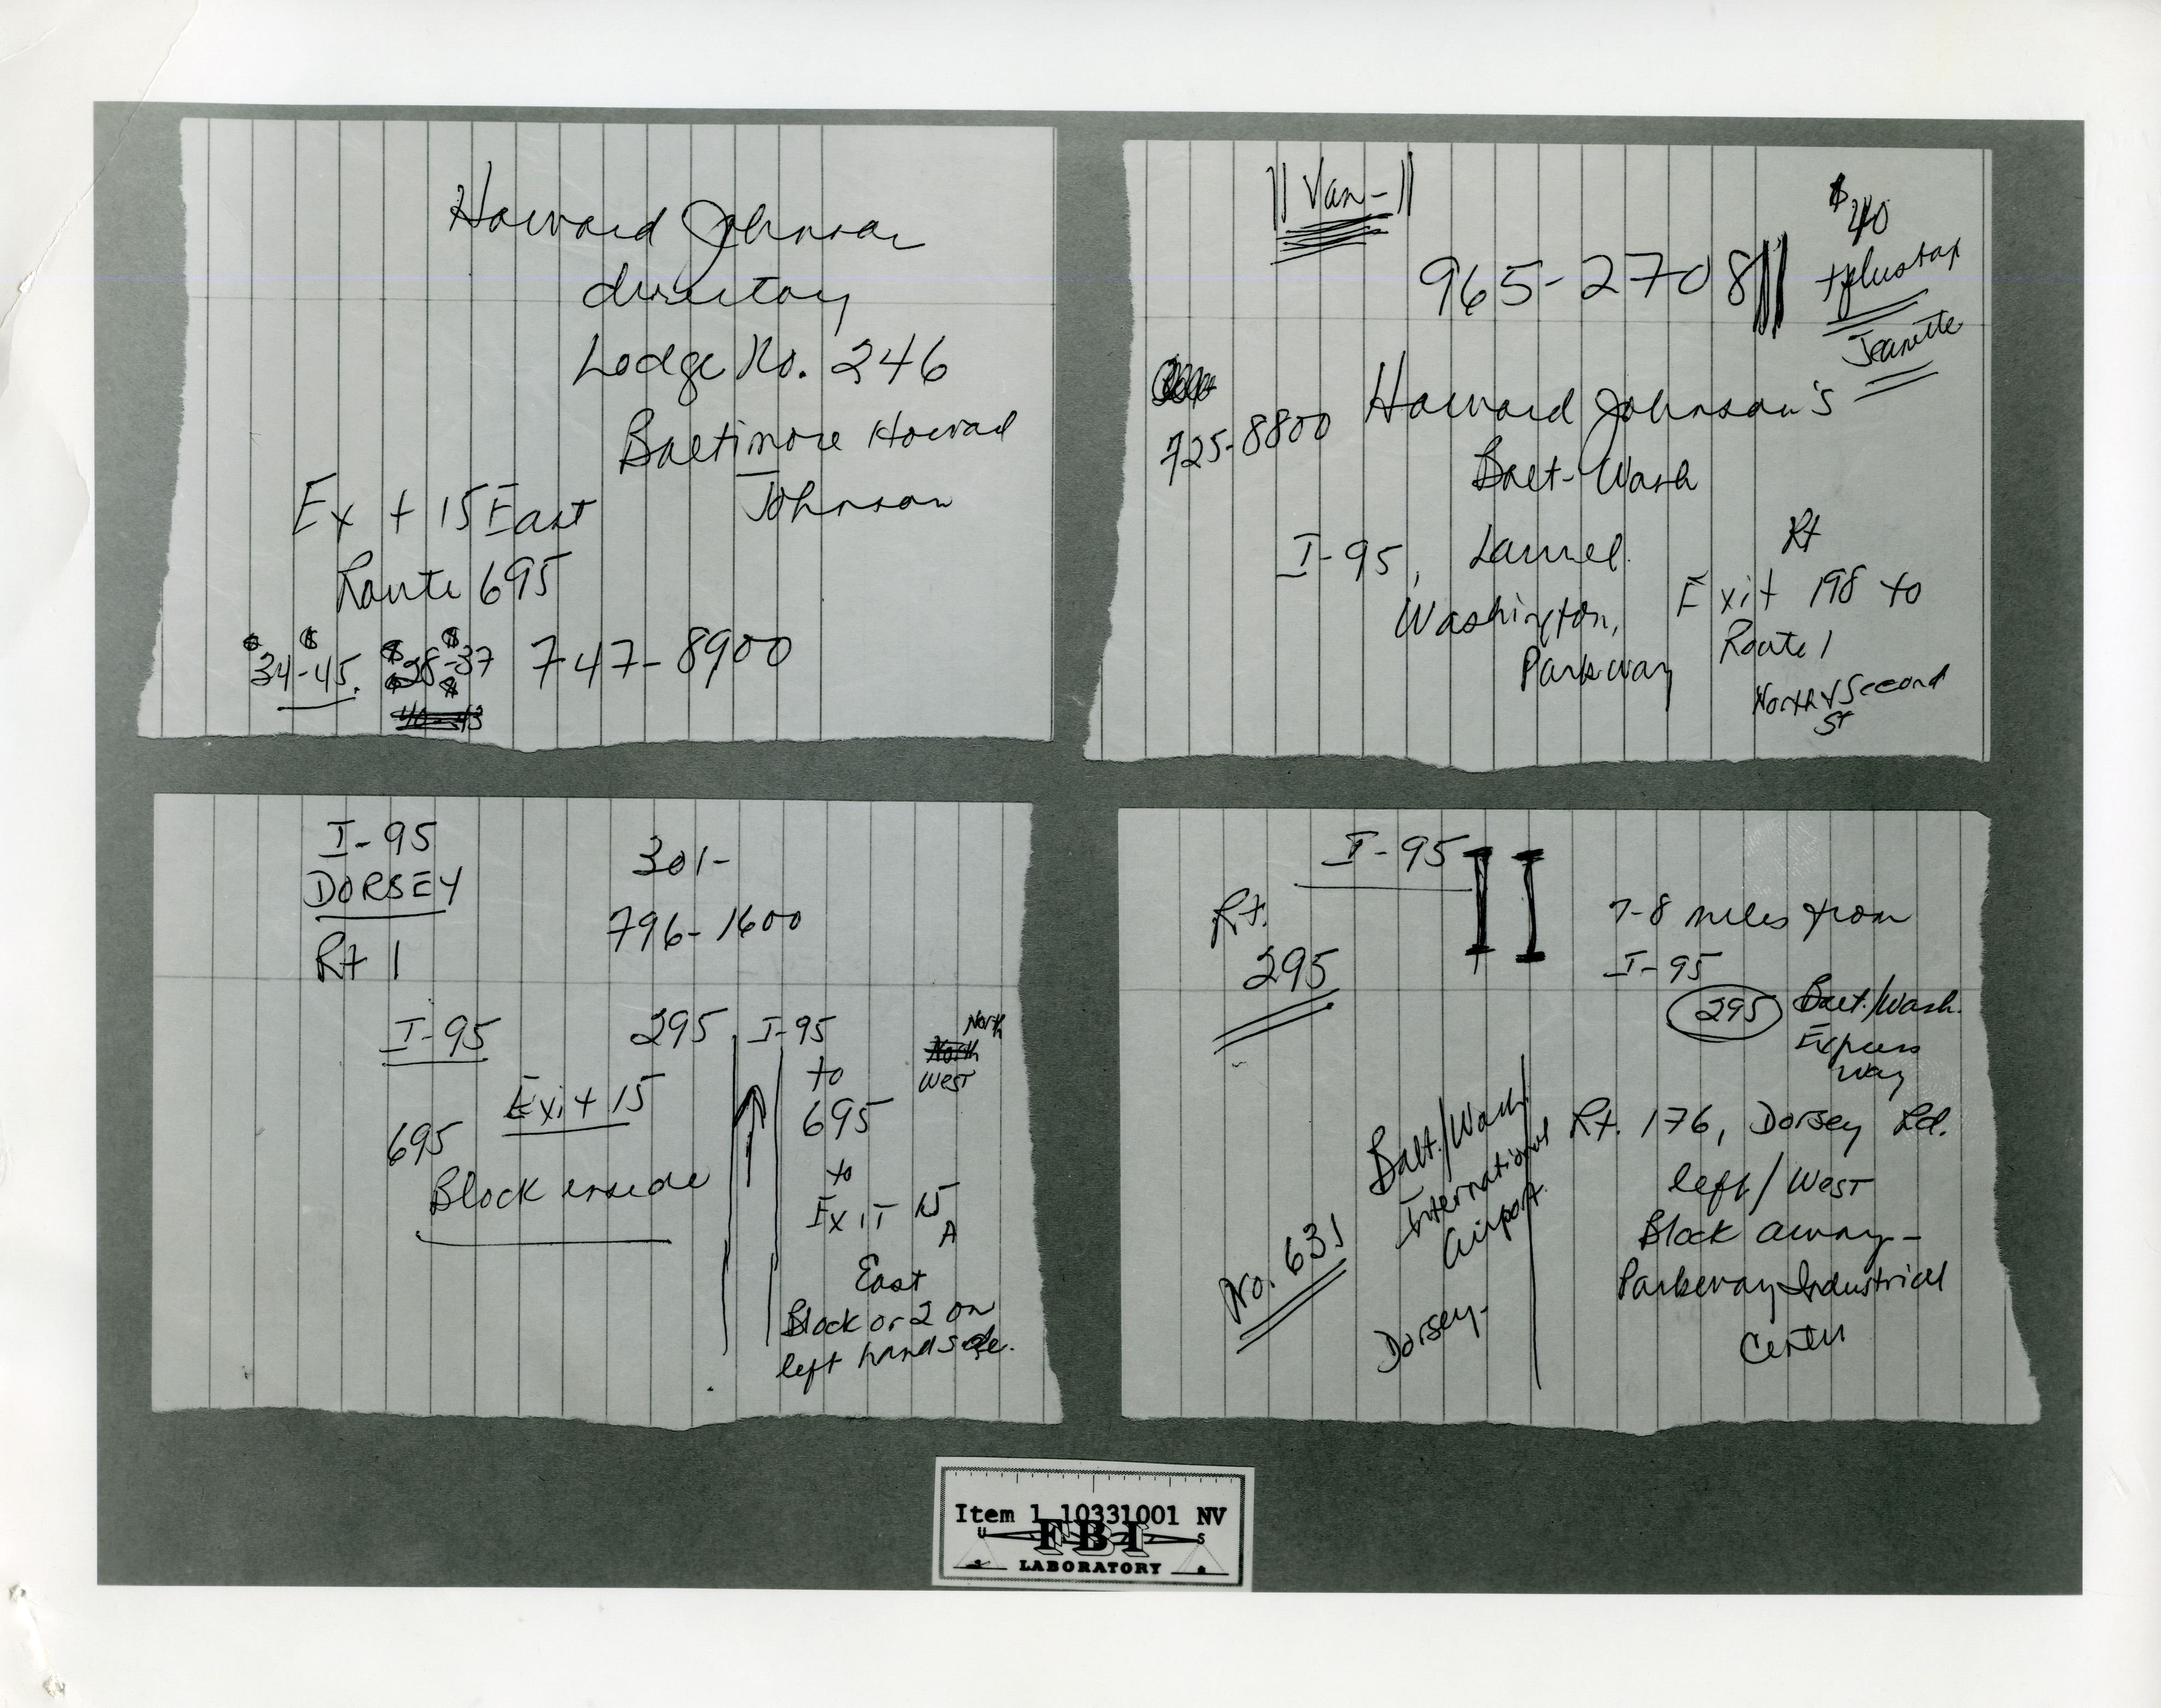 Howard Johnson
directory
Lodge No. 246
Baltimore Howard
Johnson
Ex + 15 East
Route 695
$34-$45. $28-$37 747-8900
40-43
|| Van- ||
$40
+ plus tax
Jeanette
965-2708
725-8800
Howard Johnson's
Balt-Wash
I-95, Laurel.
Washington,
Parkway
Rt
Exit 198 to
Route 1
North & Second
St
I-95
DORSEY
Rt 1
301-
796-1600
I-95 295
Exit 15
695
Block inside
I-95
to
695
to
Exit 15
A
East
Block or 2 on
left hand side.
North
North
West
I-95
Rt.
295
7-8 miles from
I-95
295 Balt./Wash.
Express
way
Rt. 176, Dorsey Rd.
left/West
Block away-
Parkway Industrial
Center
Balt./Wash/
International
Airport.
No. 631
Dorsey-
Item 1 10331001 NV
U S
FBI
LABORATORY